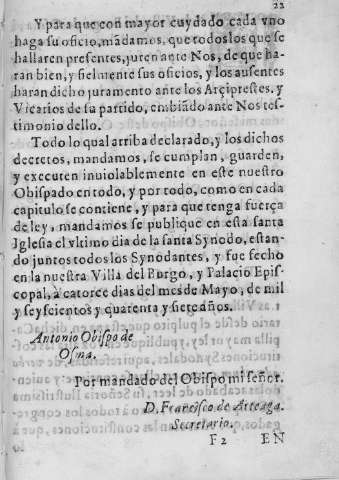 22
Y para que con mayor cuydado cada vno
haga su oficio, mãdamos, que todos los que se
hallaren presentes, juren ante Nos, de que ha-
ran bien, y fielmente sus oficios, y los ausentes
haran dicho juramento ante los Arçiprestes, y
Vicarios de su partido, embiãdo ante Nos tes-
timonio dello.
Todo lo qual arriba declarado, y los dichos
decretos, mandamos, se cumplan, guarden,
y executen inuiolablemente en este nuestro
Obispado en todo, y por todo, como en cada
capitulo se contiene, y para que tenga fuerça
de ley, mandamos se publique en esta santa
Iglesia el vltimo dia de la santa Synodo, estan-
do juntos todos los Synodantes, y fue fecho
en la nuestra Villa del Burgo, y Palacio Epis-
copal, à catorce dias del mes de Mayo, de mil
y seyscientos y quarenta y siete años.
Antonio Obispo de
Osma.
Por mandado del Obispo mi señor.
D. Francisco de Arteaga.
Secretario.
F 2 EN